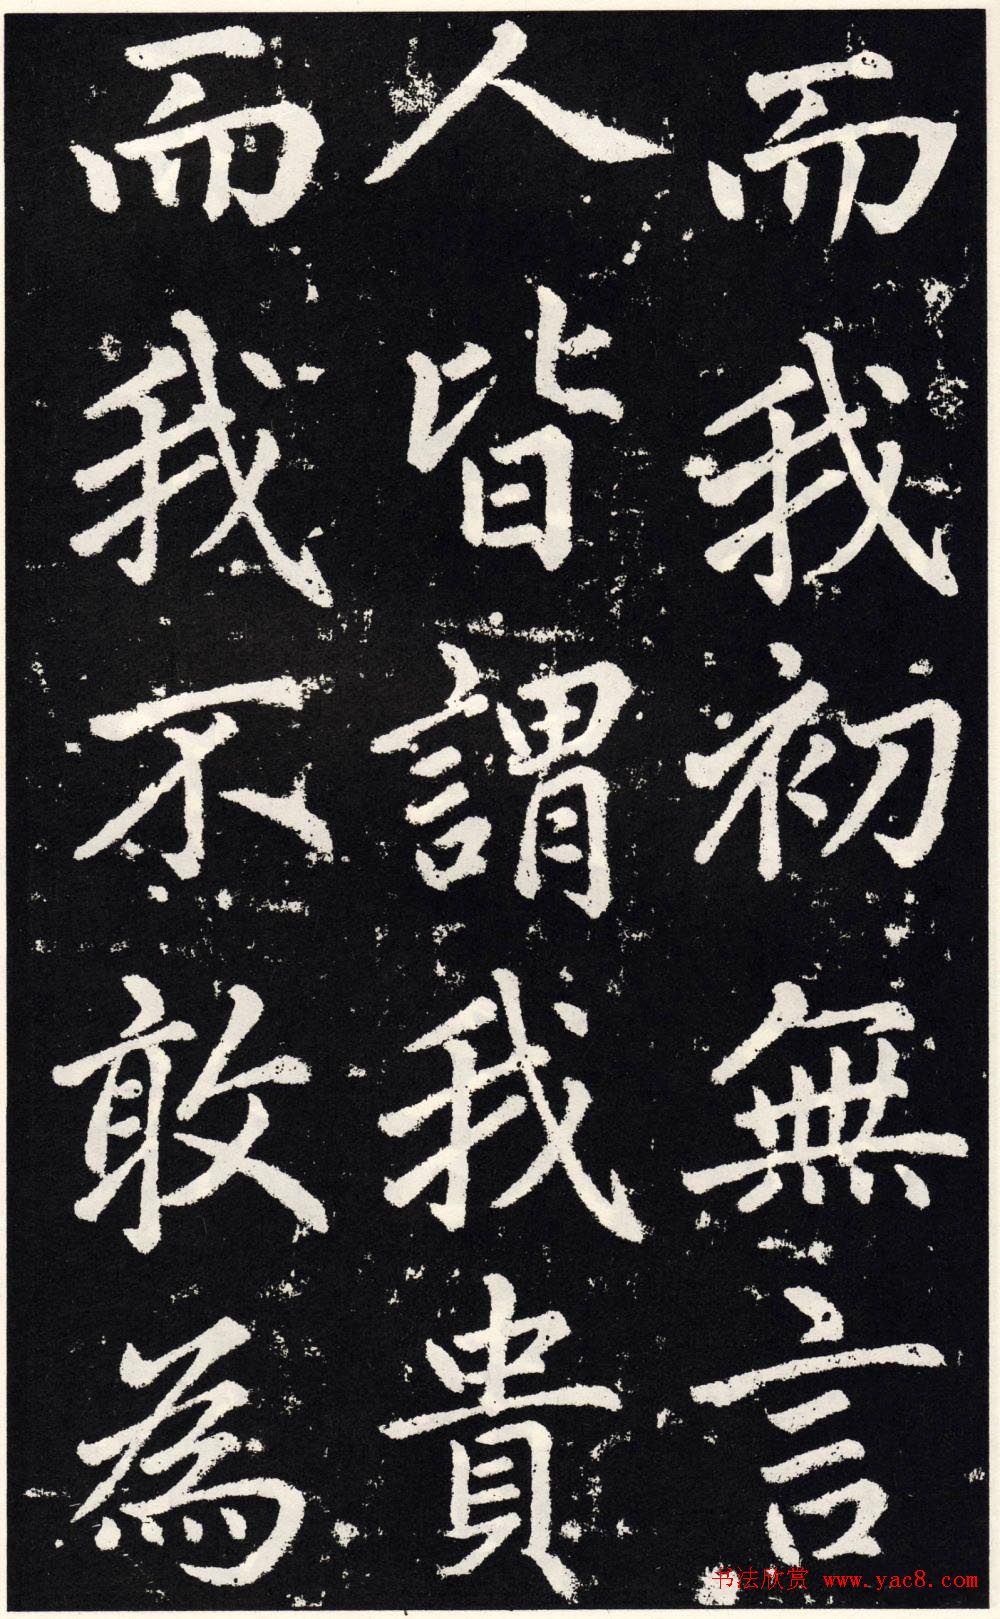 而我初無言
人皆謂我貴
而我不敢為
书法欣赏 www.yac8.com